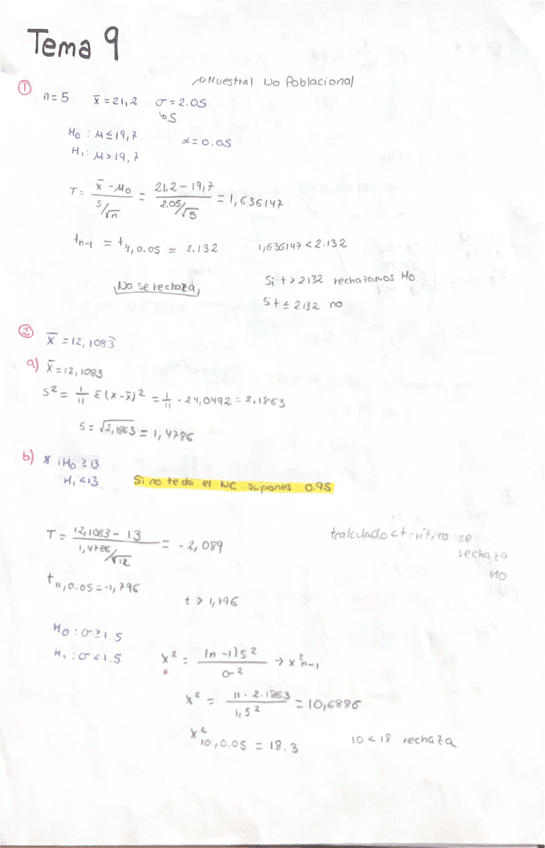 Tema 9
→ Muestral No Poblacional
① n=5 x̄=21,2 σ=2.05
↳S
H₀: μ≤19,7 α=0.05
H₁: μ>19,7
T= (x̄-μ₀)/(s/√n) = (21,2-19,7)/(2.05/√5) = 1,636147
tₙ₋₁ = t₄,₀.₀₅ = 2.132 1,636147<2.132
No se rechaza Si t>2132 rechazamos H₀
Si t≤2132 no
② x̄=12,1083
a) x̄=12,1083
S²= 1/11 Σ(x-x̄)² = 1/11 · 24,0492=2,1863
S=√2,1863 = 1,4786
b) * H₀≥13
H₁<13 Si no te da el NC supones 0.95
T= (12,1083-13)/(1,4786/√12) = -2,089 tcalculado<t crítico se
rechaza
H₀
t₁₁,₀.₀₅=-1,796
t > 1,796
H₀: σ≥1.5
H₁: σ<1.5 x² = (n-1)S²/σ² → x²ₙ₋₁
x² = (11·2.1863)/1,5² = 10,6886
x²₁₀,₀.₀₅ = 18.3 10<18 rechaza